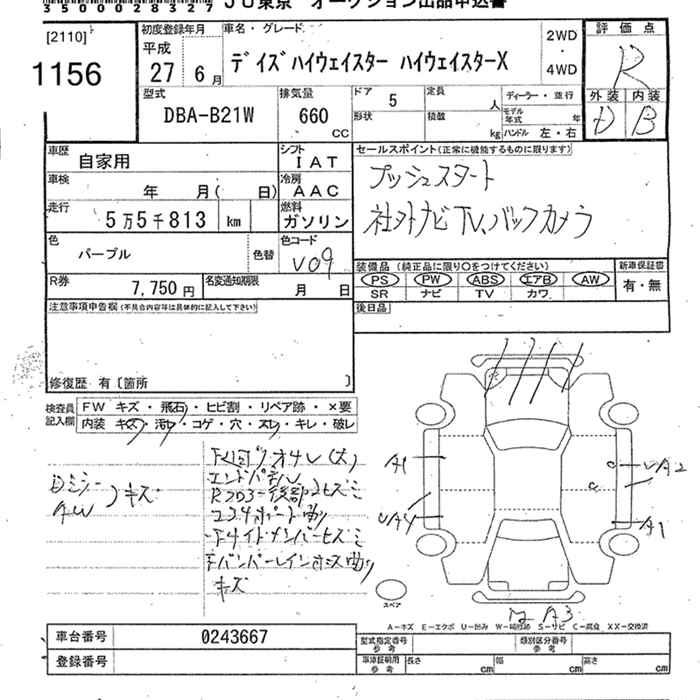 35000028327 JU東京 オークション出品申込書
[2110]
1156
初度登録年月
平成
27 6月
車名・グレード
デイズハイウェイスター ハイウェイスターX
2WD
・
4WD
評価点
R
外装 内装
D B
型式
DBA-B21W
排気量
660
CC
ドア 5
形状
定員 人
積載 kg
ディーラー・並行
モデル年式 年
ハンドル 左・右
車歴
自家用
シフト
IAT
車検
年 月( 日)
冷房
AAC
走行
5万5千813 km
燃料
ガソリン
色
パープル
色替
色コード
V09
R券
7,750円
名変通知期限
月 日
セールスポイント(正常に機能するものに限ります)
プッシュスタート
社外ナビTV、バックカメラ
装備品(純正品に限り○をつけてください)
PS PW ABS エアB AW
SR ナビ TV カワ
新車保証書
有・無
後日品
注意事項申告欄(不具合内容等は具体的に記入して下さい)
修復歴 有〔箇所 〕
検査員
記入欄
FW キズ・飛石・ヒビ割・リペア跡・×要
内装 キズ・汚レ・コゲ・穴・スレ・キレ・破レ
キズ
AW
エンドパネル
コアサポート曲り
キズ
A1
UA4
UA2
A1
A3
スペア
A-キズ E-エクボ U-凹み W-補修跡 S-サビ C-腐食 XX-交換済
車台番号
0243667
登録番号
型式指定番号
参考
類別区分番号
参考
車庫証明用
参考
長さ cm
幅 cm
高さ cm